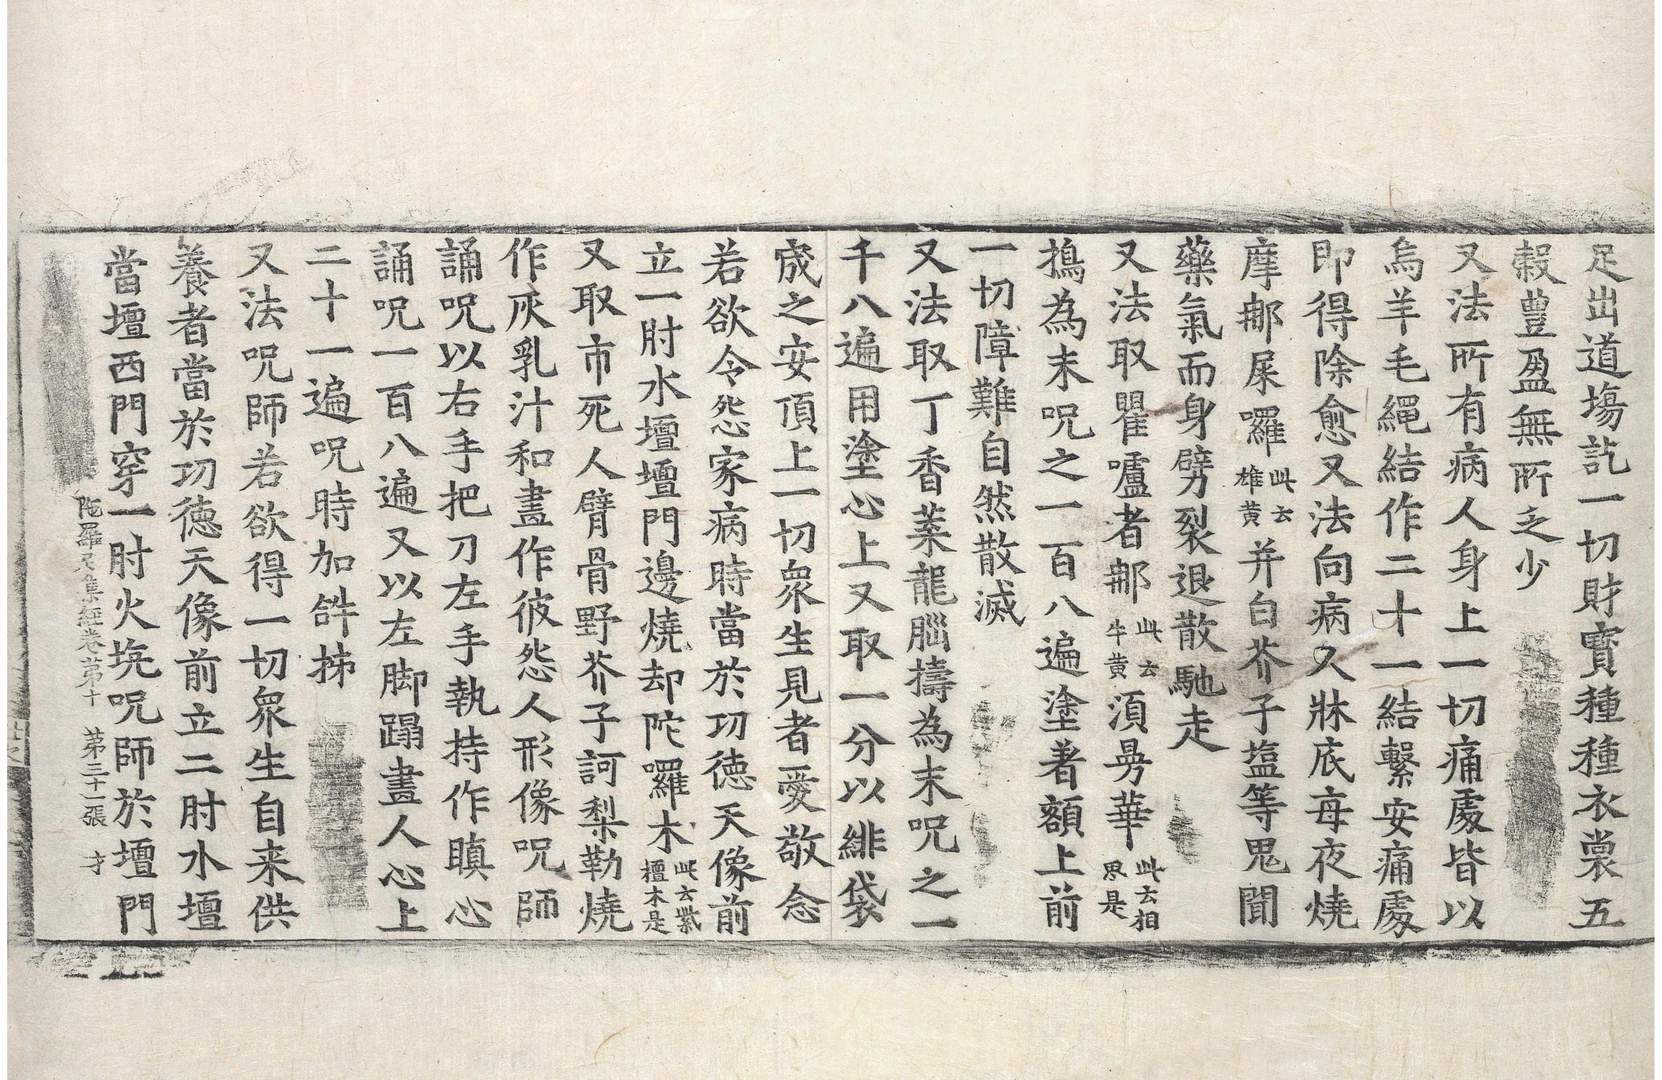 足出道場訖一切財寶種種衣裳五
穀豊盈無所乏少
又法所有病人身上一切痛處皆以
烏羊毛繩結作二十一結繫安痛處
即得除愈又法向病人牀底每夜燒
摩那屎囉此云雄黄并白芥子塩等鬼聞
藥氣而身劈裂退散馳走
又法取瞿嚧者那此云牛黄湏曼華此云相思是
搗為末呪之一百八遍塗著額上前
一切障難自然散滅
又法取丁香蘂龍腦擣為末呪之一
千八遍用塗心上又取一分以緋袋
盛之安頂上一切衆生見者愛敬念
若欲令怨家病時當於功徳天像前
立一肘水壇壇門邊燒却陀囉木此云紫檀木是
又取市死人臂骨野芥子訶梨勒燒
作灰乳汁和畫作彼怨人形像呪師
誦呪以右手把刀左手執持作瞋心
誦呪一百八遍又以左脚蹋畫人心上
二十一遍呪時加𤙖抺
又法呪師若欲得一切衆生自来供
養者當於功徳天像前立二肘水壇
當壇西門穿一肘火坑呪師於壇門
陁羅尼集經卷苐十 苐三十一張 才